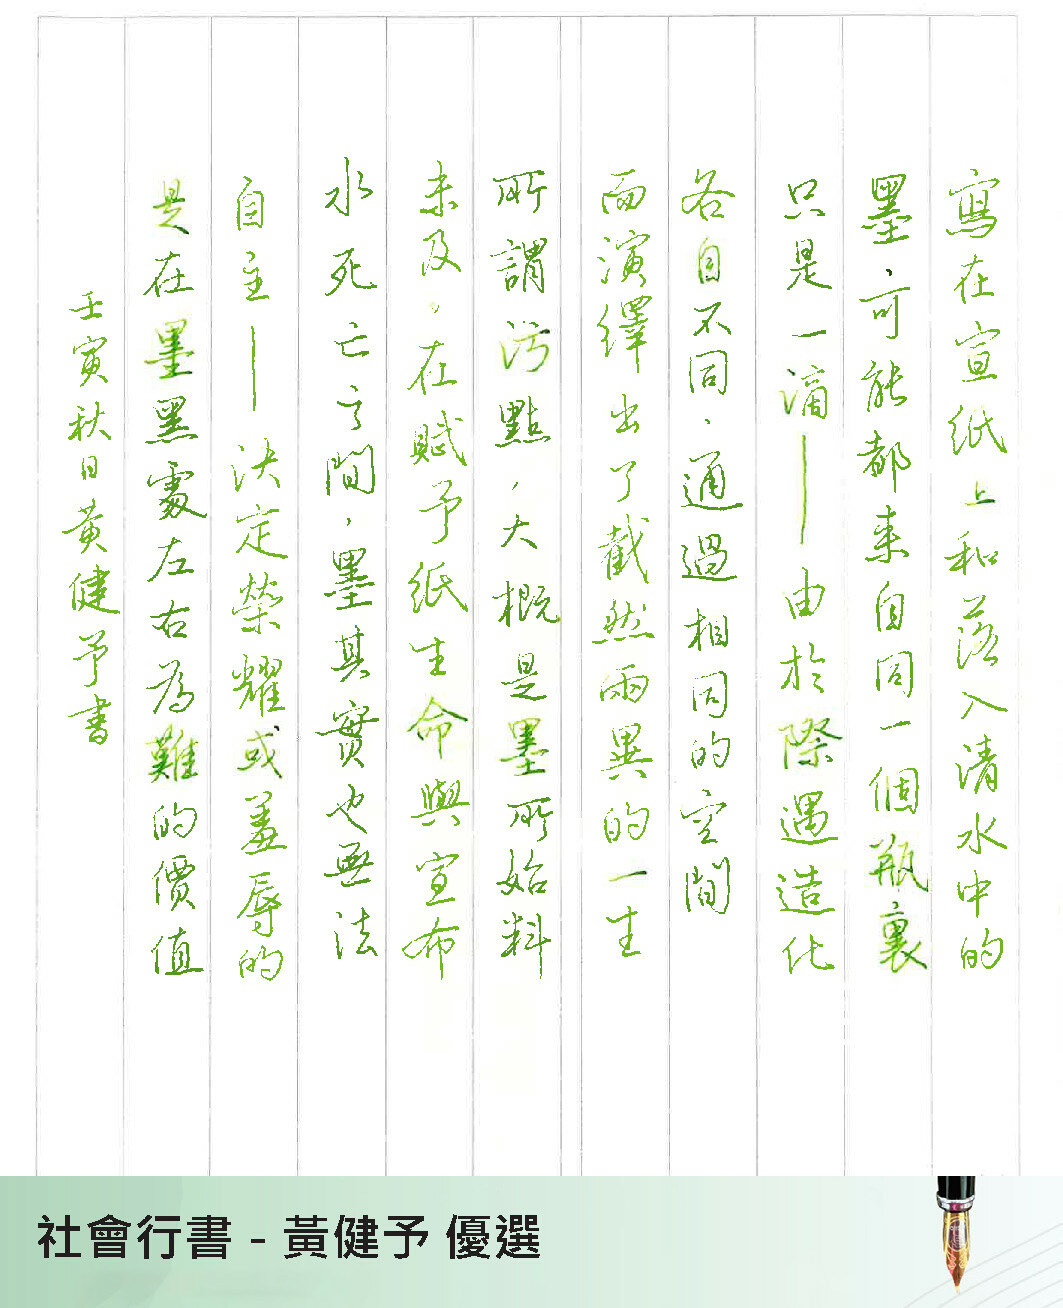 寫在宣紙上和落入清水中的
墨，可能都來自同一個瓶裏
只是一滴——由於際遇造化
各自不同、通過相同的空間
而演繹出了截然兩異的一生
所謂污點，大概是墨所始料
未及，在賦予紙生命與宣布
水死亡之間，墨其實也無法
自主——決定榮耀或羞辱的
是在墨黑處左右為難的價值
壬寅秋日黃健予書
社會行書 - 黃健予 優選